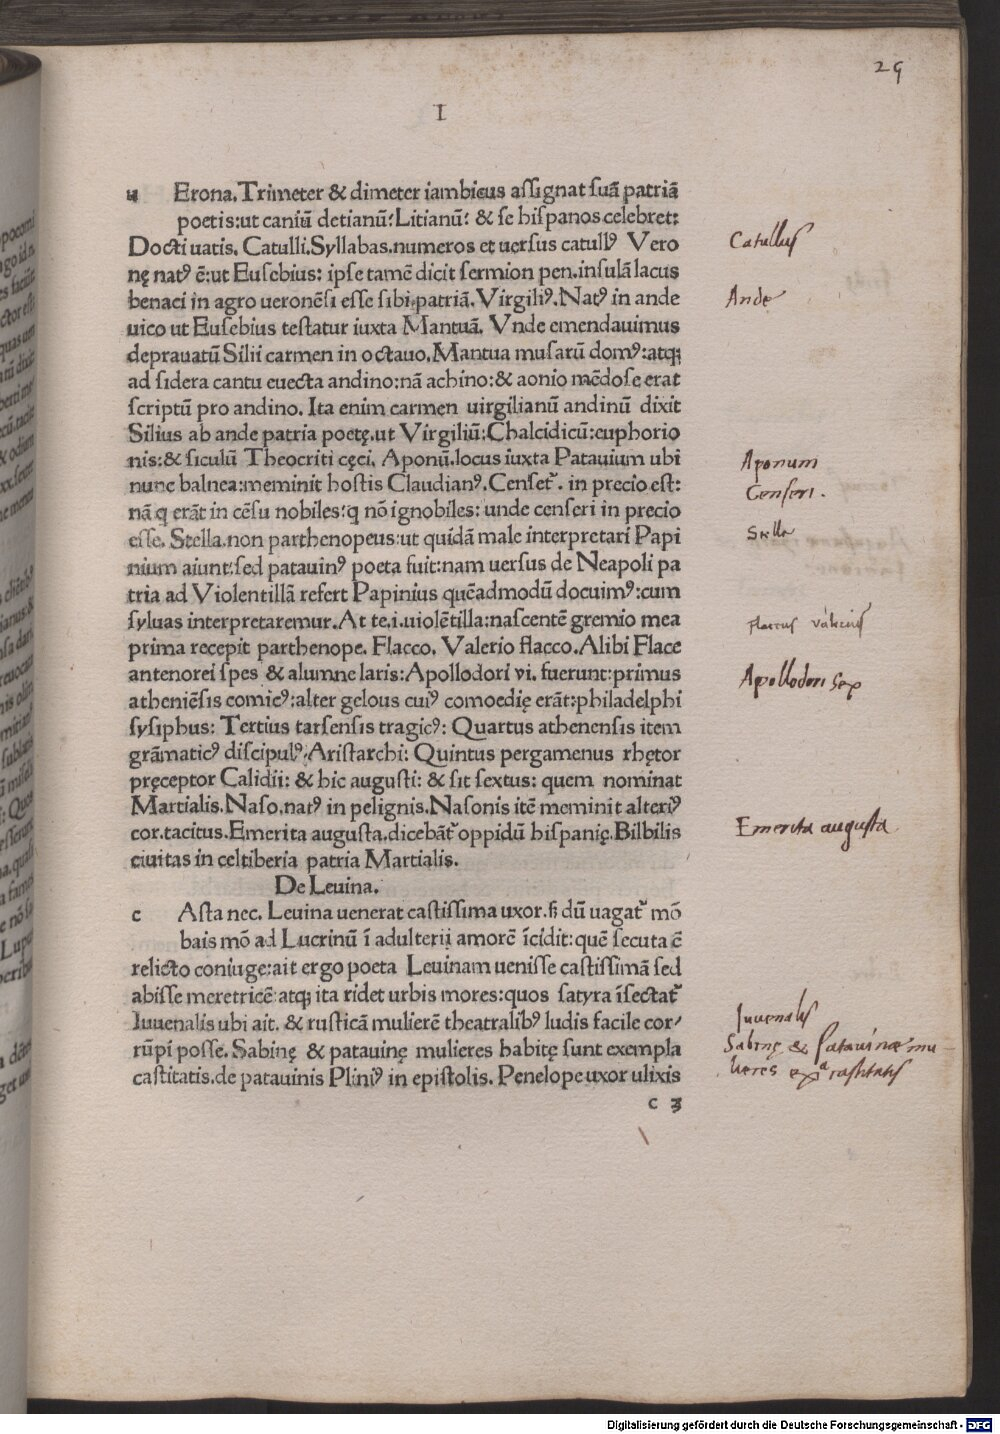 29
I
u Erona.Trimeter & dimeter iambicus assignat suā patriā
poetis:ut caniū detianū:Litianū: & se hispanos celebret:
Docti uatis. Catulli.Syllabas.numeros et uersus catullꝰ Vero
nę natꝰ ē:ut Eusebius: ipse tamē dicit sermion pen.insulā lacus
benaci in agro ueronēsi esse sibi patriā. Virgiliꝰ. Natꝰ in ande
uico ut Eusebius testatur iuxta Mantuā. Vnde emendauimus
deprauatū Silii carmen in octauo. Mantua musarū domꝰ:atq;
ad sidera cantu euecta andino:nā achino:& aonio mēdose erat
scriptū pro andino. Ita enim carmen uirgilianū andinū dixit
Silius ab ande patria poetę.ut Virgiliū:Chalcidicū:euphorio
nis:& siculū Theocriti cęci. Aponū.locus iuxta Patauium ubi
nunc balnea:meminit hostis Claudianꝰ. Censet᷑. in precio est:
nā q erāt in cēsu nobiles:q nō ignobiles: unde censeri in precio
esse. Stella.non parthenopeus:ut quidā male interpretari Papi
nium aiunt:sed patauinꝰ poeta fuit:nam uersus de Neapoli pa
tria ad Violentillā refert Papinius quēadmodū docuimꝰ:cum
syluas interpretaremur.At te.i.uiolētilla:nascentē gremio mea
prima recepit parthenope. Flacco. Valerio flacco.Alibi Flace
antenorei spes & alumne laris:Apollodori vi. fuerunt:primus
atheniēsis comicꝰ:alter gelous cuiꝰ comoedię erāt:philadelphi
sysiphus: Tertius tarsensis tragicꝰ: Quartus athenensis item
grāmaticꝰ discipulꝰ:Aristarchi: Quintus pergamenus rhętor
pręceptor Calidii: & hic augusti: & sit sextus: quem nominat
Martialis.Naso.natꝰ in pelignis.Nasonis itē meminit alteriꝰ
cor.tacitus.Emerita augusta.dicebāt᷑ oppidū hispanię.Bilbilis
ciuitas in celtiberia patria Martialis.
De Leuina.
c Asta nec. Leuina uenerat castissima uxor.ß dū uagat᷑ mō
bais mō ad Lucrinū ī adulterii amorē īcidit:quē secuta ē
relicto coniuge:ait ergo poeta Leuinam uenisse castissimā sed
abisse meretricē:atq; ita ridet urbis mores:quos satyra īsectat᷑
Iuuenalis ubi ait. & rusticā mulierē theatralibꝰ ludis facile cor/
rūpi posse. Sabinę & patauinę mulieres habitę sunt exempla
castitatis.de patauinis Pliniꝰ in epistolis. Penelope uxor ulixis
c 3
Catullus
Ande
Aponum
Censeri.
Stella
Flaccus Valerius
Apollodori sex
Emerita augusta
Iuuenalis
Sabinę & patauinae mu
lieres exa castitatis
Digitalisierung gefördert durch die Deutsche Forschungsgemeinschaft - DFG